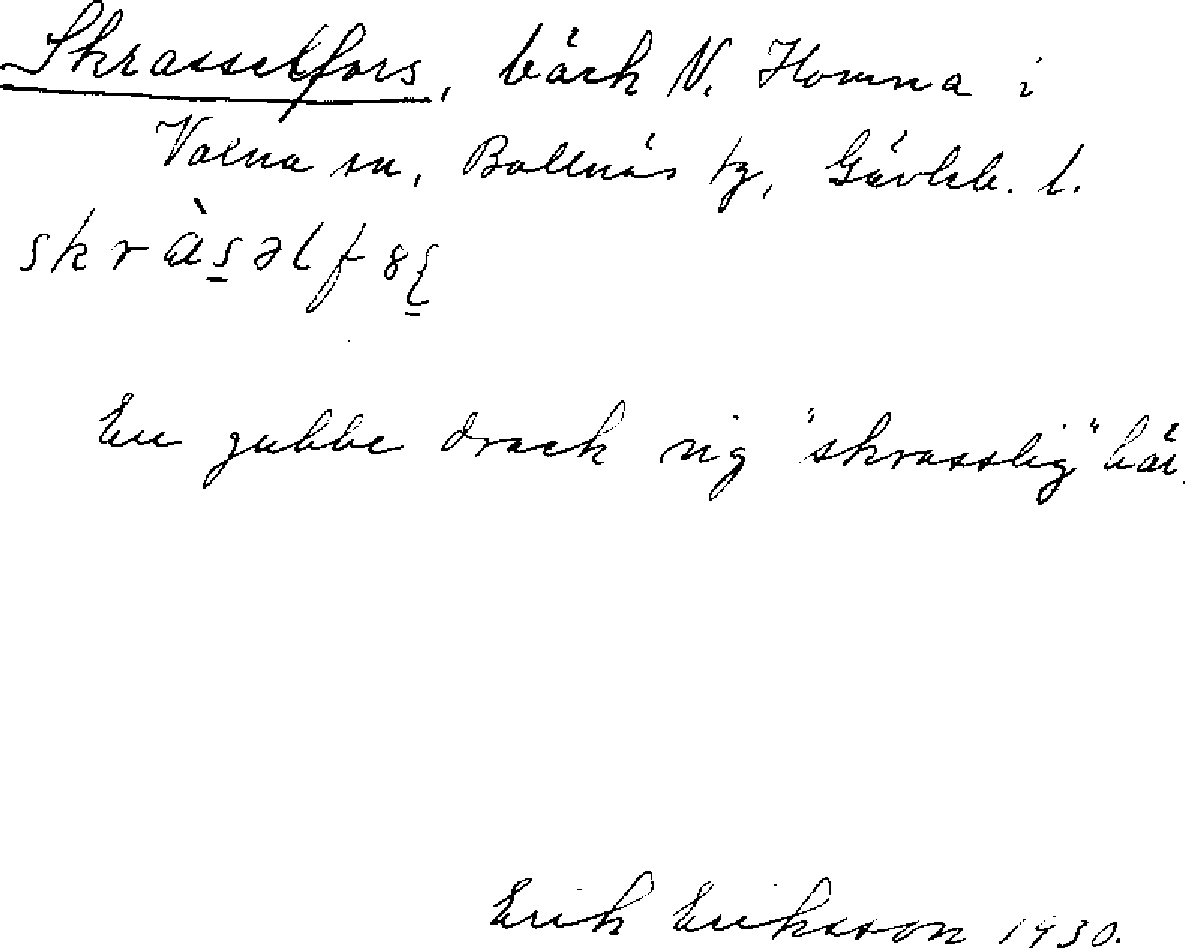 Skrasselfors, bäck N. Homna i
Voxna sn, Bollnäs tg, Gävleb. l.
skràs̲əlf8
En gubbe drack sig "skrasslig" här.
Erik Eriksson 1930.